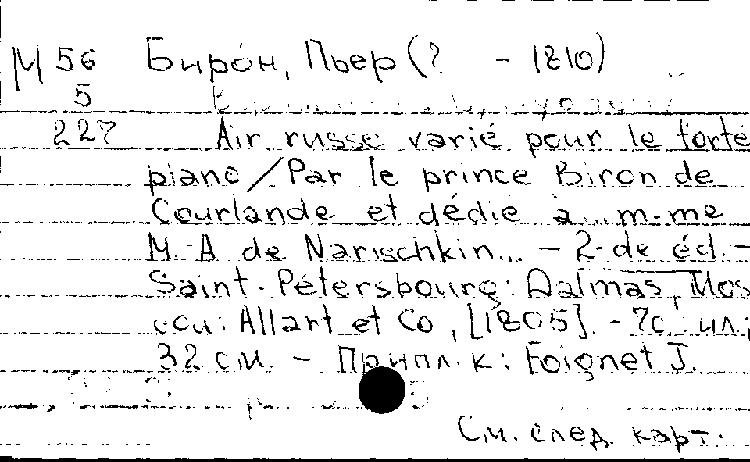 М 56 Бирон, Пьер (? - 1810)
5
227 Air russe varié pour le forte
piano / Par le prince Biron de
Courlande et dédié à m-me
M. A de Narischkin... - 2-de éd. -
Saint-Pétersbourg: Dalmas, Mos
cou: Allart et Co, [1805]. - 7с. ил.;
32 см. - Припл. к: Foignet J.
См. след. карт.